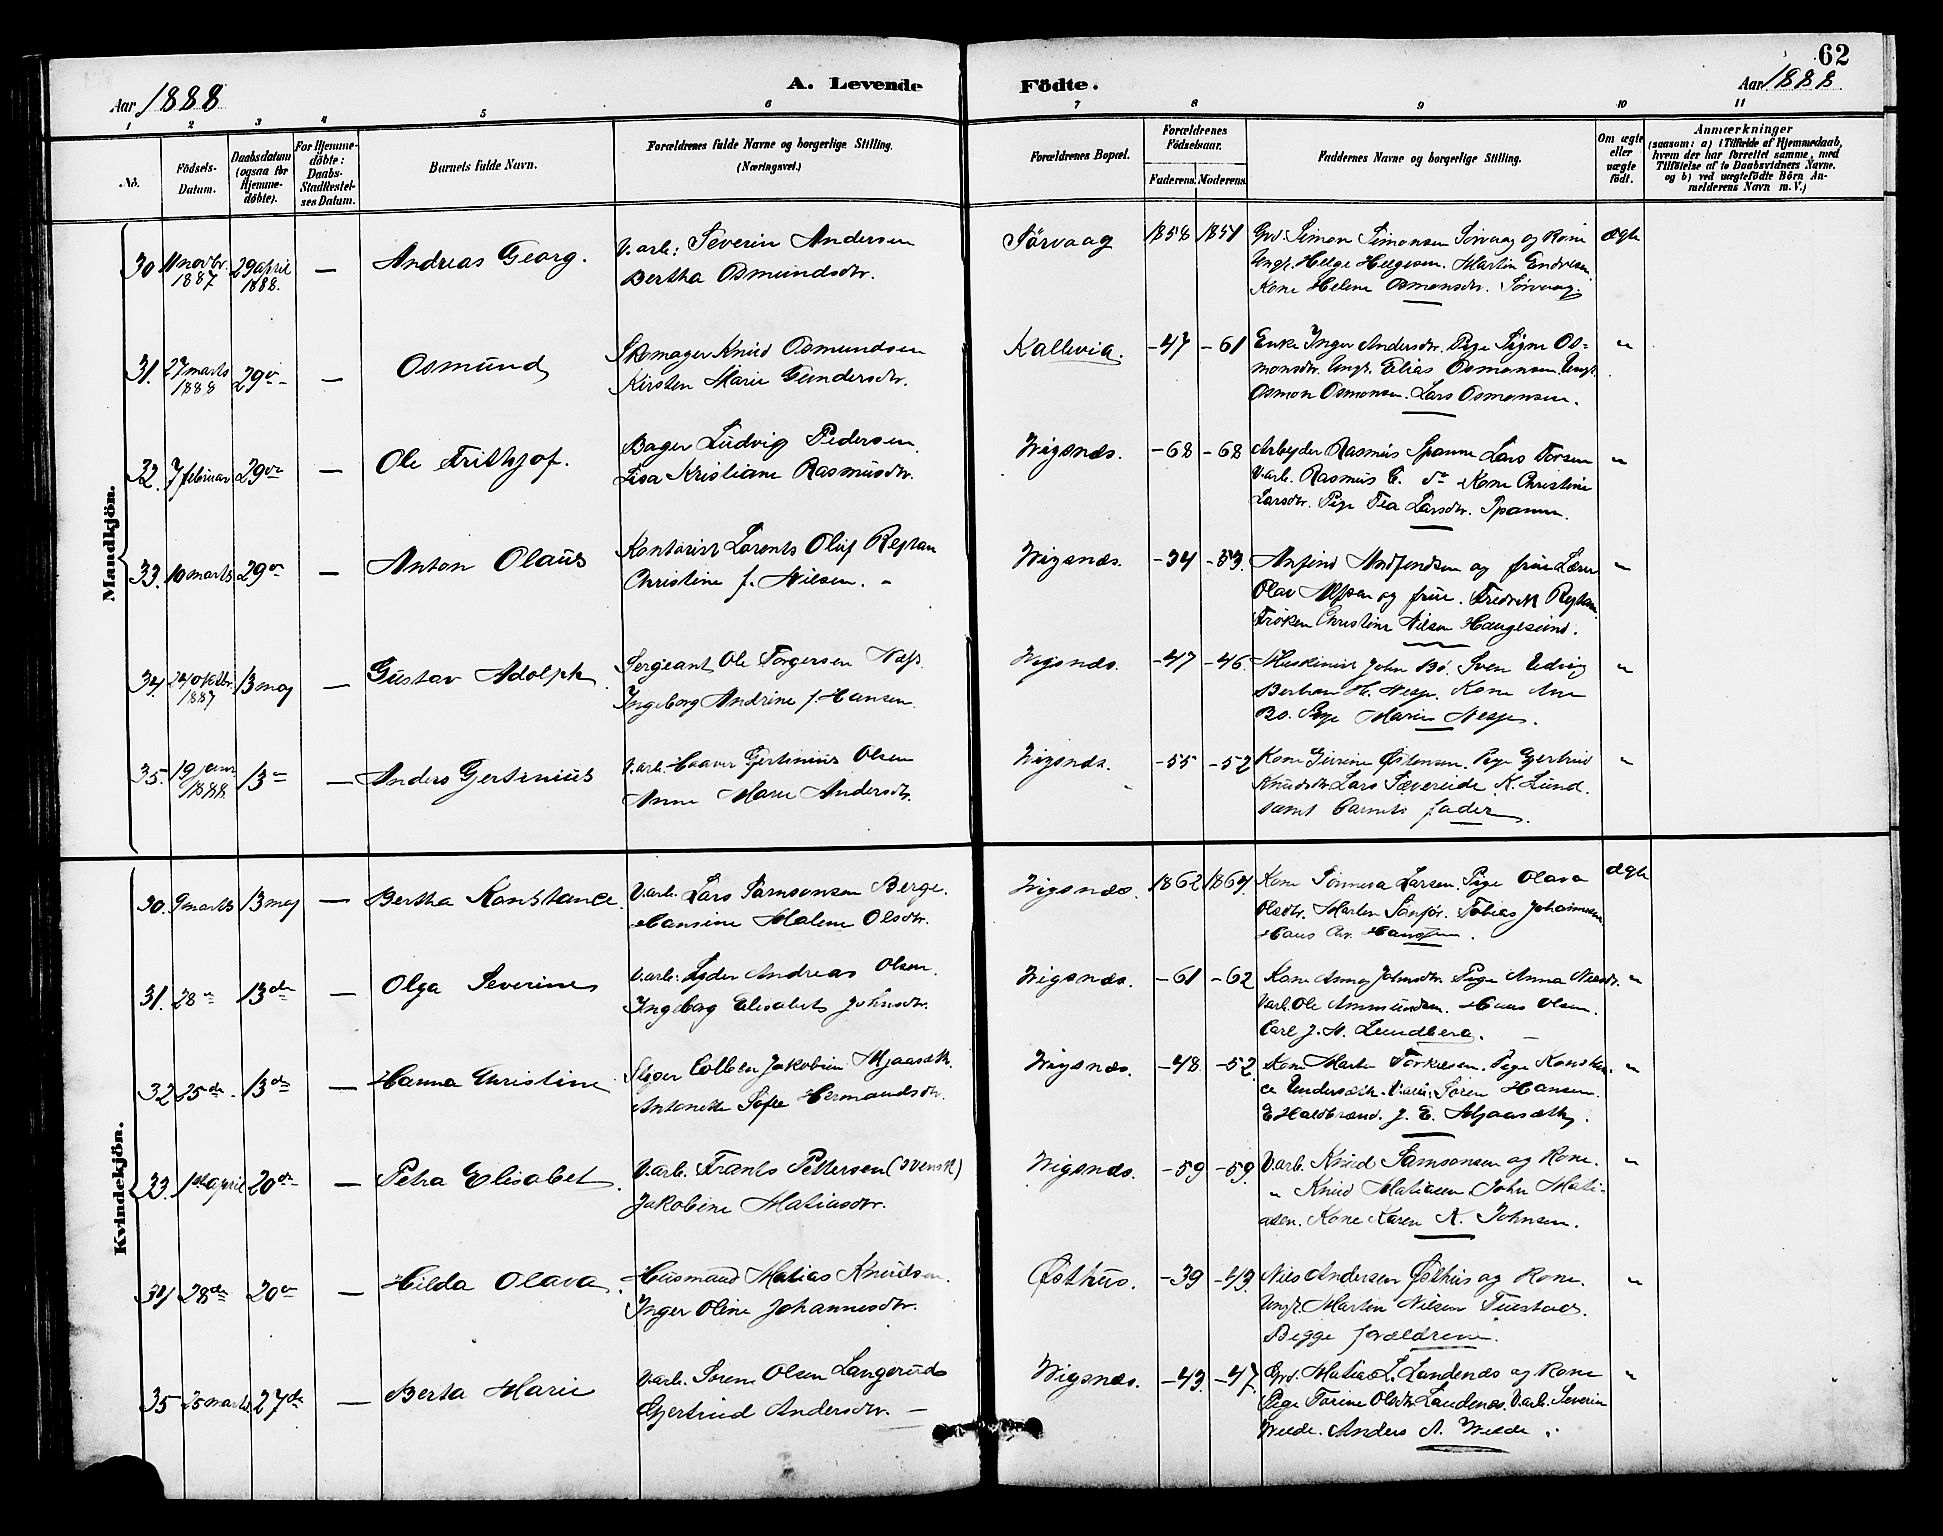 62
Aar 1888
A. Levende
Födte.
Aar 1888
1 2 3 4 5 6 7 8 9 10 11
No.
Födsels-Datum.
Daabsdatum (ogsaa for Hjemme-döbte).
For Hjemme-döbte: Daabs-Stadfæstel-ses Datum.
Barnets fulde Navn.
Forældrenes fulde Navne og borgerlige Stilling. (Næringsvei.)
Forældrenes Bopæl.
Forældrenes Födselsaar.
Faderens. Moderens.
Faddernes Navne og borgerlige Stilling.
Om ægte eller uægte födt.
Anmærkninger
(saasom: a) i Tilfælde af Hjemmedaab,
hvem der har forrettet samme, med
Tilföielse af to Daabsvidners Navne.
og b) ved uægtefödte Börn An-
melderens Navn m. V.)
Mandkjön.
30 11 novbr. 1887 29 april 1888. — Andreas Georg.
V. arb: Severin Andersen
Bertha Osmundsdtr.
Sørvaag 1858 1851
Grd. Simon Simonsen Sørvaag og Kone
Ungk. Helge Helgesen. Martin Endresen.
Kone Helene Osmonsdtr. Sørvaag.
ægte
31. 27 marts 1888 29de — Osmund
Skomager Knud Osmundsen
Kirsten Marie Gundersdtr.
Kallevia. -47 -61
Enke Inger Andersdtr. Pige Signe Os-
monsdtr. Ungk. Elias Osmonsen. Ungk.
Osmon Osmonsen. Lars Osmonsen.
"
32. 7 februar 29de — Ole Frithjof.
Bager Ludvig Pedersen
Lisa Kristiane Rasmusdtr.
Wigsnæs. -68 -68
Arbeyder Rasmus Spanne Lars Torsen
V. arb. Rasmus E. do Kone Christine
Larsdtr. Pige Tea Larsdtr. Spanne.
"
33. 10 marts 29de — Anton Olaus
Kontorist Lorents Oluf Reptan
Christine f. Nilsen.
Wigsnæs. -34 -53.
Anfind Andfindsen og frue Lærer
Olav Alfsen og frue. Fredrik Reptan
Frøken Christine Nilsen Haugesund.
"
34. 24 oktbr. 1887 13 maj — Gustav Adolph
Sergeant Ole Torgersen Næss.
Ingeborg Andrine f. Hansen.
Wigsnæs. -47 -46.
Maskinist John Bø. Sven Udvig
H. Kone Ane
Bø. Pige Marie
"
35. 19 janr 1888. 13 " — Anders Gertinius
V. arb. Haaver Gertinius Olsen
Anne Marie Andersdtr.
Wigsnæs. -55 -52
Kone Østensen. Pige Gjertrud
Knudsdtr. Lars Sævereide. K. Lund.
samt barnets fader.
"
Kvindekjön.
30. 9 marts 13 maj — Bertha Konstance.
V. arb. Lars Samsonsen Berge.
Hansine Malene Olsdtr.
Wigsnæs. 1862 1864.
Kone Sønneva Larsen. Pige Olava
Olsdtr. Martin Tobias Johannesen
Hans Chr. Hanssen.
ægte
31. 28 " 13de — Olga Severine
V. arb: Lyder Andreas Olsen.
Ingeborg Elisabet Johnsdtr.
Wigsnæs. -61 -62
Kone Anna Johnsdtr. Pige Anna
V. arb. Ole Ammundsen. Hans Olsen.
Carl J. N. Lundberg.
"
32 25de. 13de — Hanna Christine
Steger Colben Jakobsen Mjaasæth.
Antonette Sofie Hermandsdtr.
Wigsnæs. -48 -52.
Kone Marte Torkelsen. Pige Konstan-
ce Undersæth. V. arb: Søren Hansen.
E Haldbrand. J. E. Mjaasæth.
"
33. 1ste april 20de — Petra Elisabet.
V. arb. Frants Pettersen (svensk)
Jakobine Matiasdtr.
Wigsnæs. -59 -59.
V. arb. Knud Samsonsen og Kone.
" Knud Matiasen. John Mati-
asen. Kone Karen K. Johnsen.
"
34 28de 20de — Hilda Olava
Husmand Matias Knudsen.
Inger Oline Johannesdtr.
Østhus. -39 -43.
Nils Andersen Østhus og Kone.
Ungk. Martin Nilsen
Begge forældrene.
"
35 25 marts 27de — Berta Marie
V. arb. Søren Olsen Langerud
Gjertrud Andersdtr. —
Wigsnæs. -43. -47.
Grd. Matias L. Landenæs og Kone
Pige Torine Olsdtr. Landenæs. V. arb. Severin
Welde. Anders A. Welde.
"